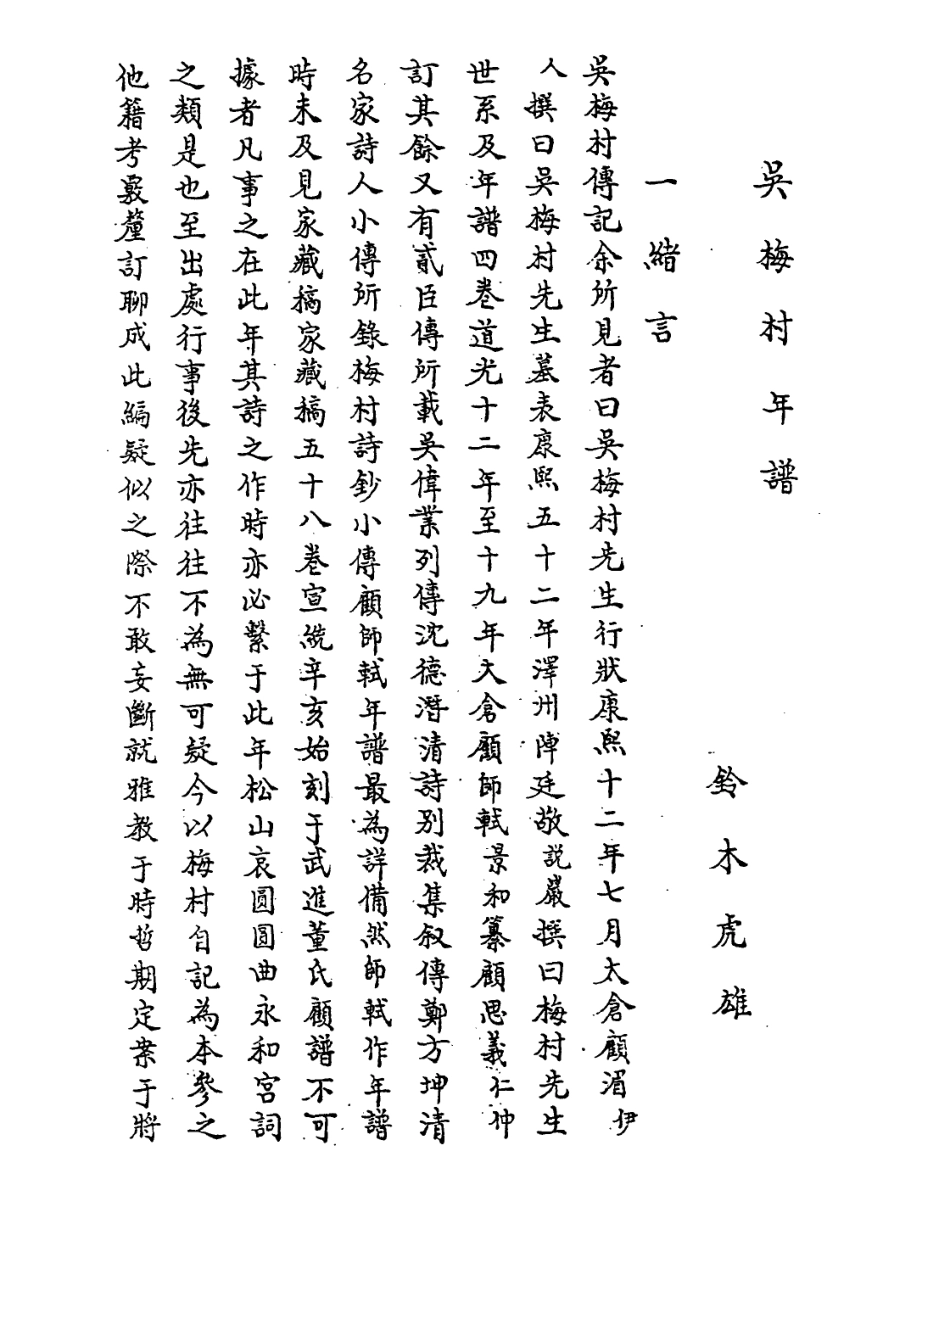 吳梅村年譜
鈴木虎雄
一緒言
吳梅村傳記余所見者曰吳梅村先生行狀康熙十二年七月太倉顧湄伊
人撰曰吳梅村先生墓表康熙五十二年澤州陣廷敬説巖撰曰梅村先生
世系及年譜四卷道光十二年至十九年大倉顧師軾景和纂顧思義仁仲
訂其餘又有貳臣傳所載吳偉業列傳沈德潛清詩別裁集叙傳鄭方坤清
名家詩人小傳所錄梅村詩鈔小傳顧師軾年譜最為詳備然師軾作年譜
時未及見家藏稿家藏稿五十八卷宣統辛亥始刻于武進董氏顧譜不可
據者凡事之在此年其詩之作時亦必繫于此年松山哀圓圓曲永和宮詞
之類是也至出處行事後先亦往往不為無可疑今以梅村自記為本參之
他籍考覈釐訂聊成此編疑似之際不敢妄斷就雅教于時哲期定案于將